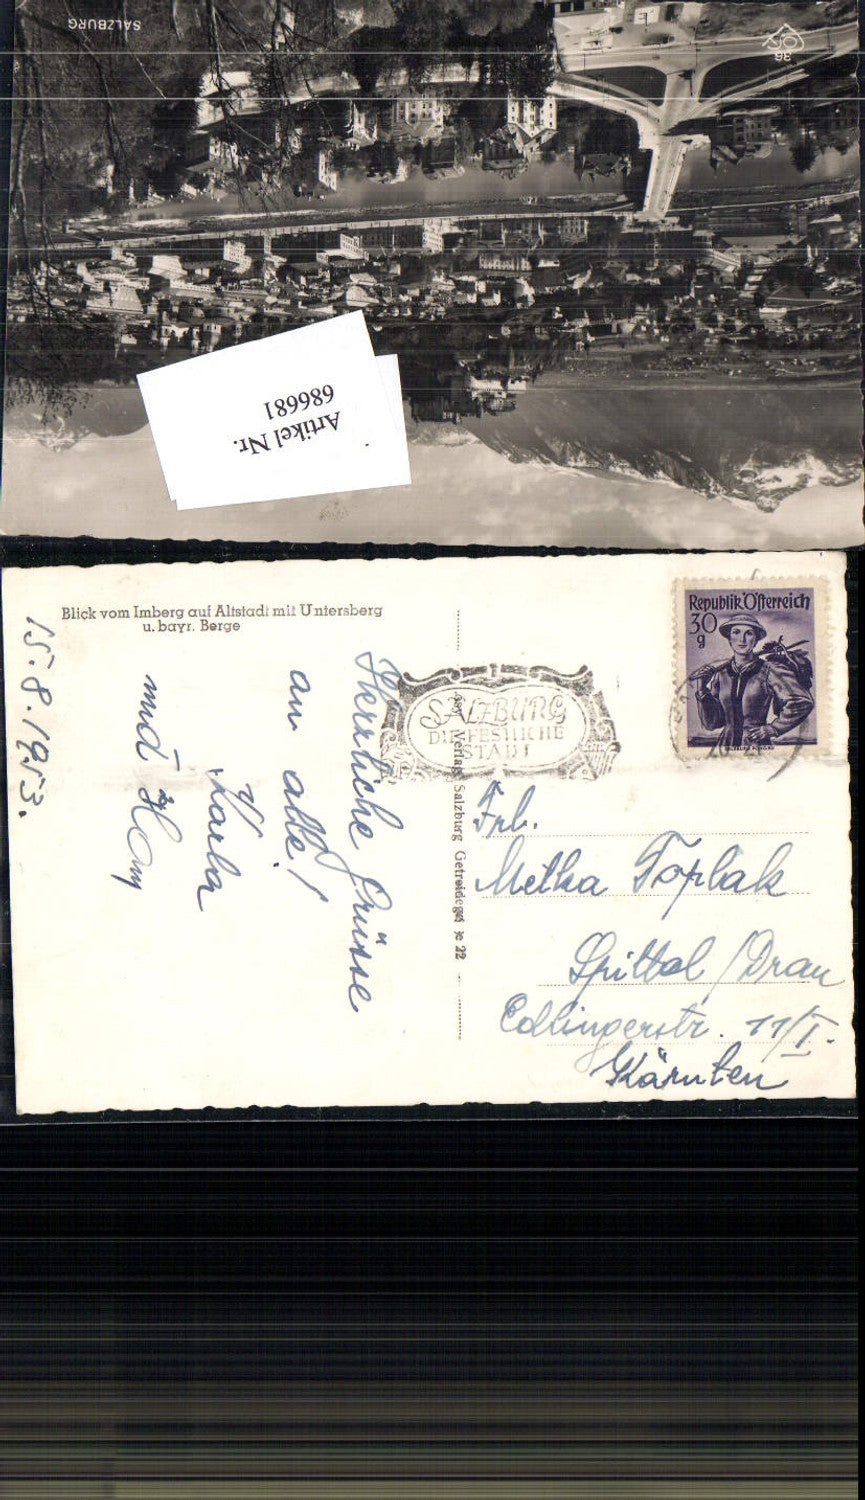 SALZBURG
36
Artikel Nr.
686681
Blick vom Imberg auf Altstadt mit Untersberg
u. bayr. Berge
15.8.1953.
Herrliche Grüsse
an alle!
Karla
und
SALZBURG
DIE FESTLICHE
STADT
Republik Österreich
30
g
Verlag Salzburg Getreidegasse 22
Frl.
Metka Toplak
Spittal / Drau
Edlingerstr. 11/I.
Kärnten